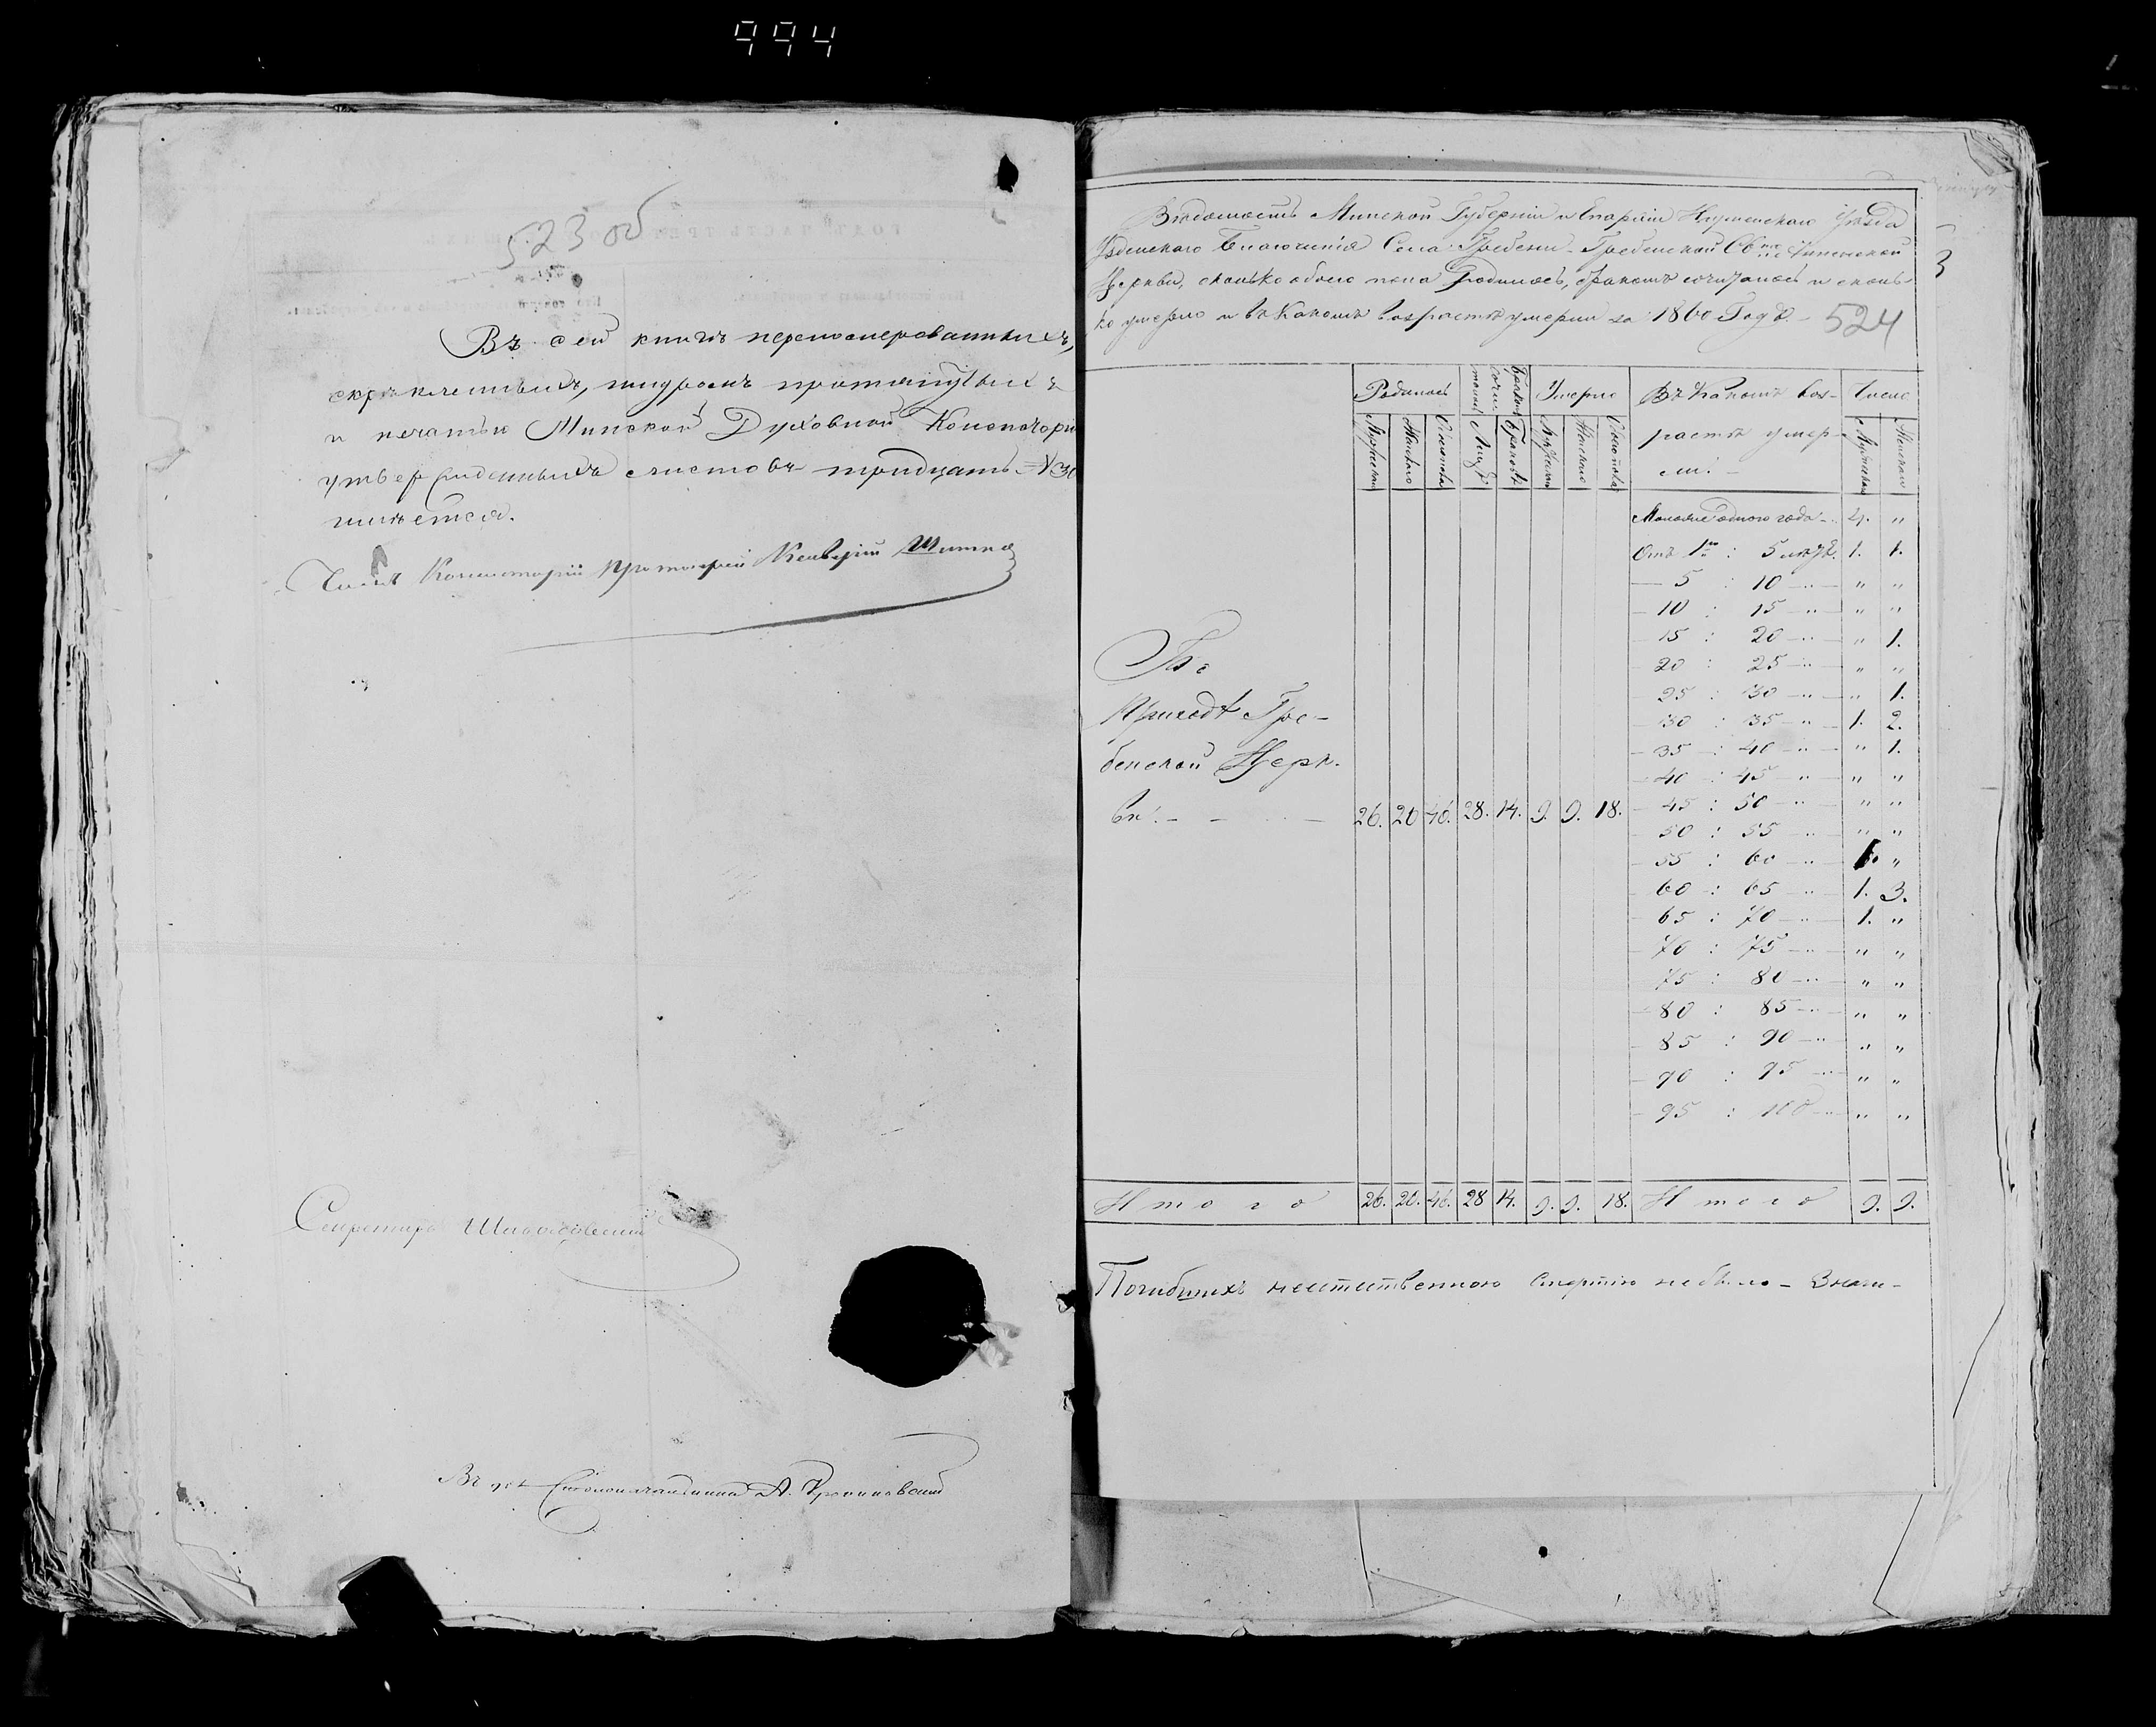 994
523 об
Въ сей книгѣ перенумерованныхъ,
скрѣпленныхъ, шнуромъ протянутыхъ
и печатью Минской Духовной Консисторіи
утвержденныхъ листовъ тридцать = № 30
имѣется.
Членъ Консисторіи Протоіерей
Секретарь
Столоначальника А.
Вѣдомость Минской Губерніи и Епархіи Игуменскаго Уѣзда
Узденскаго Благочинія Села Гребени Гребенской
Церкви, сколько обоего пола Родилось, бракомъ сочеталось и сколь-
ко умерло и въ какомъ возрастѣ умерли за 1860 Годъ 524
Родилось Бракомъ сочетаній Умерло Въ какомъ воз- Число
Мужеска Женскаго Обоего пола Лицъ Браковъ Мужеска Женскаго Обоего пола растѣ умер- Мужеска Женскаго
ли: –
Моложе одного года 4. "
Отъ 1го : 5 лѣтъ 1. 1.
5 : 10 " "
10 : 15 " "
15 : 20 " 1.
20 : 25 " "
25 : 30 " 1.
30 : 35 1. 2.
35 : 40 " 1.
40 : 45 " "
45 : 50 " "
50 : 55 " "
55 : 60 1. "
60 : 65 1. 3.
65 : 70 1. "
70 : 75 " "
75 : 80 " "
80 : 85 " "
85 : 90 " "
90 : 95 " "
95 : 100 " "
Въ
Приходѣ Гре-
бенской Церк-
ви: 26. 20 46. 28. 14. 9. 9. 18.
Итого 26. 20. 46. 28 14. 9. 9. 18. Итого 9. 9.
Погибшихъ неестественною смертію небыло –